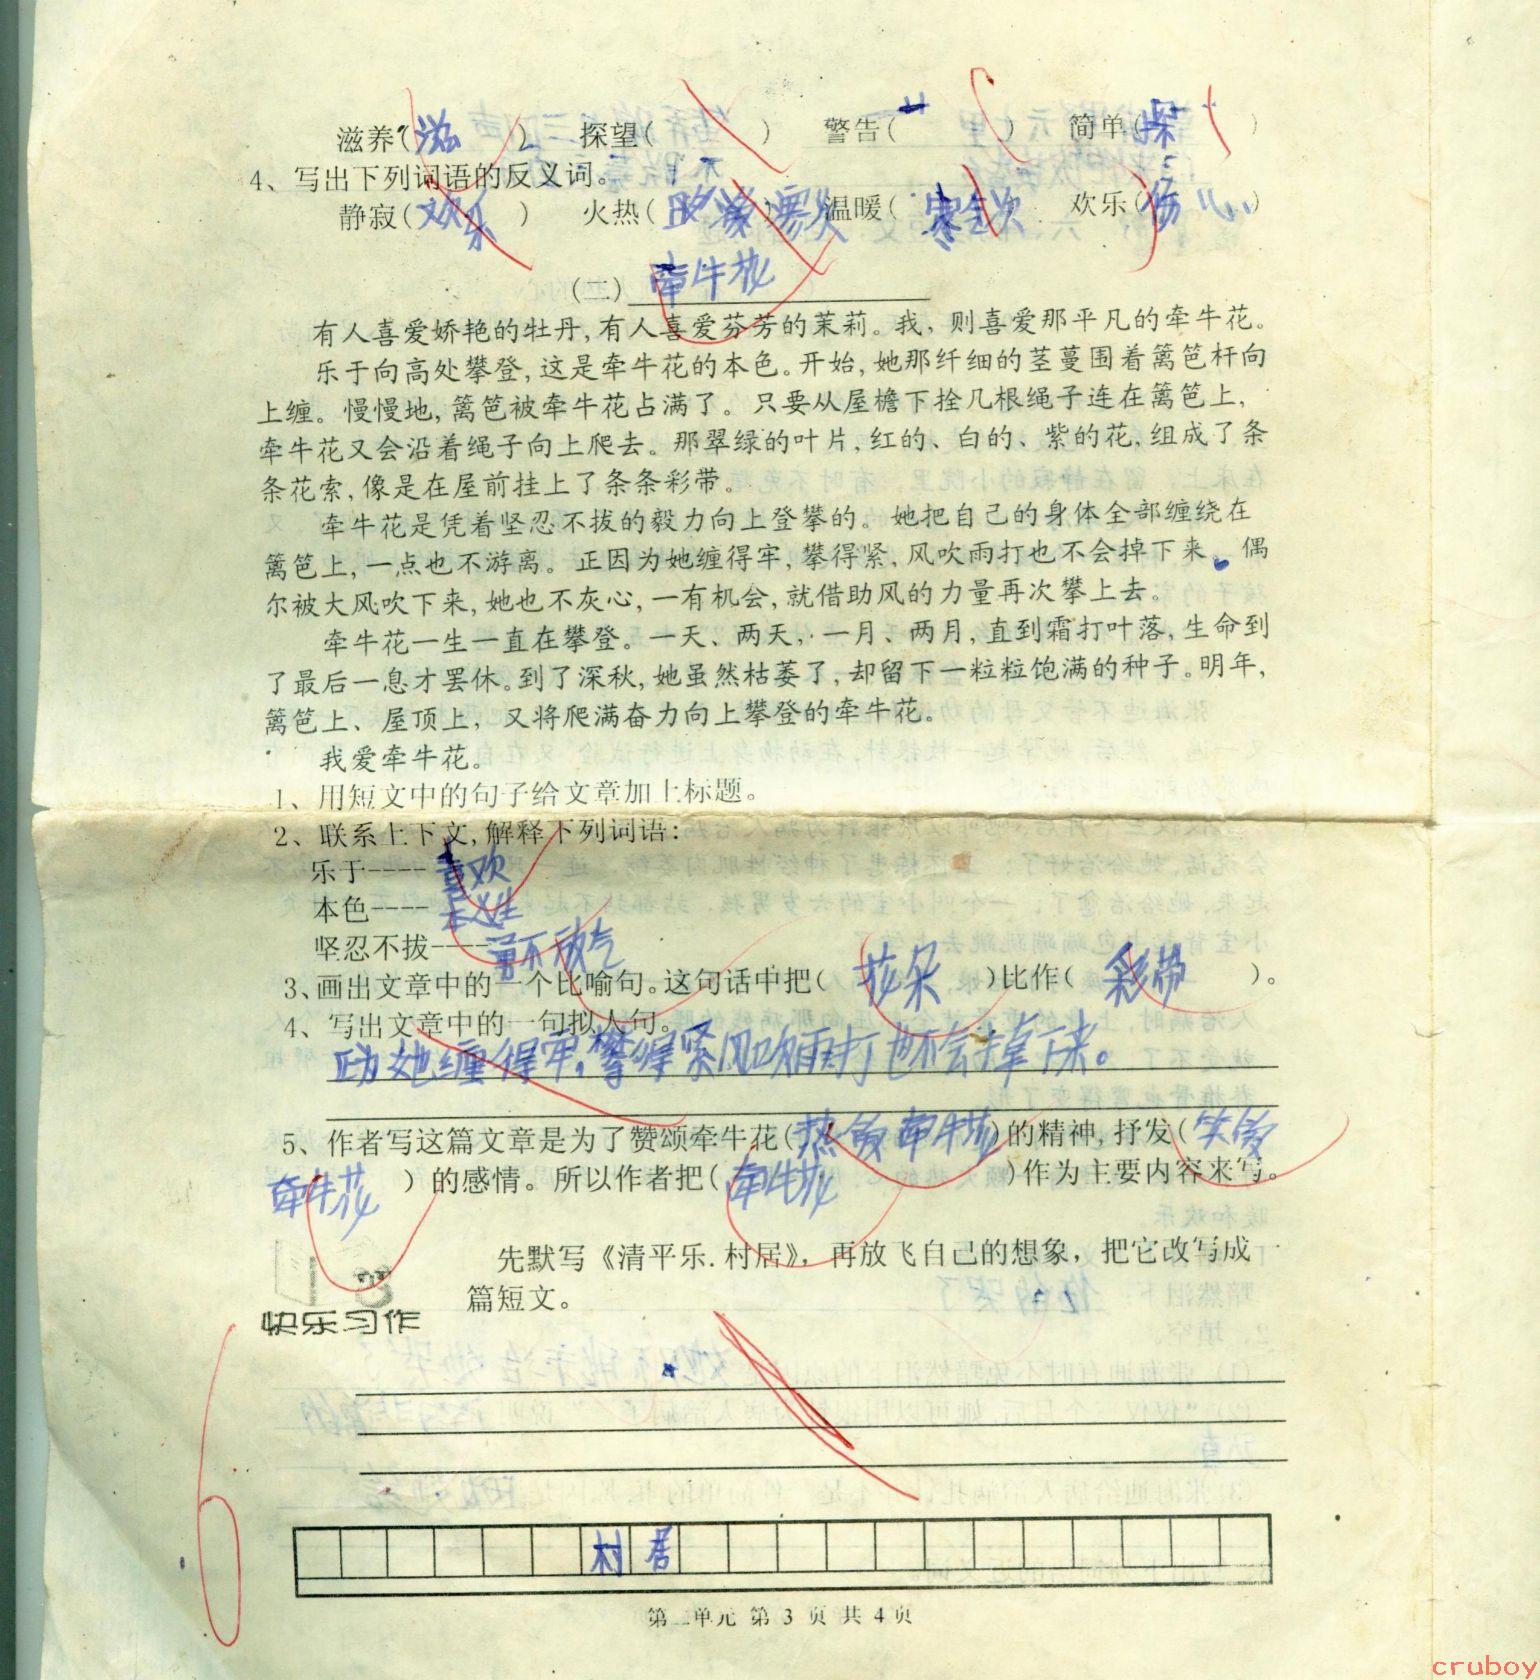 滋养(滋 ) 探望( ) 警告( ) 简单( )
4、写出下列词语的反义词。
静寂(欢乐 ) 火热( ) 温暖(寒 ) 欢乐(伤心)
(二) 牵牛花
有人喜爱娇艳的牡丹,有人喜爱芬芳的茉莉。我，则喜爱那平凡的牵牛花。
乐于向高处攀登,这是牵牛花的本色。开始,她那纤细的茎蔓围着篱笆杆向
上缠。慢慢地,篱笆被牵牛花占满了。只要从屋檐下拴几根绳子连在篱笆上,
牵牛花又会沿着绳子向上爬去。那翠绿的叶片,红的、白的、紫的花,组成了条
条花索,像是在屋前挂上了条条彩带。
牵牛花是凭着坚忍不拔的毅力向上登攀的。她把自己的身体全部缠绕在
篱笆上,一点也不游离。正因为她缠得牢,攀得紧,风吹雨打也不会掉下来。偶
尔被大风吹下来,她也不灰心,一有机会,就借助风的力量再次攀上去。
牵牛花一生一直在攀登。一天、两天,一月、两月,直到霜打叶落,生命到
了最后一息才罢休。到了深秋,她虽然枯萎了,却留下一粒粒饱满的种子。明年,
篱笆上、屋顶上，又将爬满奋力向上攀登的牵牛花。
我爱牵牛花。
1、用短文中的句子给文章加上标题。
2、联系上下文,解释下列词语:
乐于----喜欢
本色----本性
坚忍不拔----不放气
3、画出文章中的一个比喻句。这句话中把( 花朵 )比作( 彩带 )。
4、写出文章中的一句拟人句。
她缠得牢,攀得紧风吹雨打也不会掉下来。
5、作者写这篇文章是为了赞颂牵牛花(热爱牵牛花)的精神,抒发(
牵牛花 )的感情。所以作者把(牵牛花 )作为主要内容来写。
先默写《清平乐.村居》，再放飞自己的想象，把它改写成一
篇短文。
快乐习作
村居
第二单元 第 3 页 共 4 页
cruboy